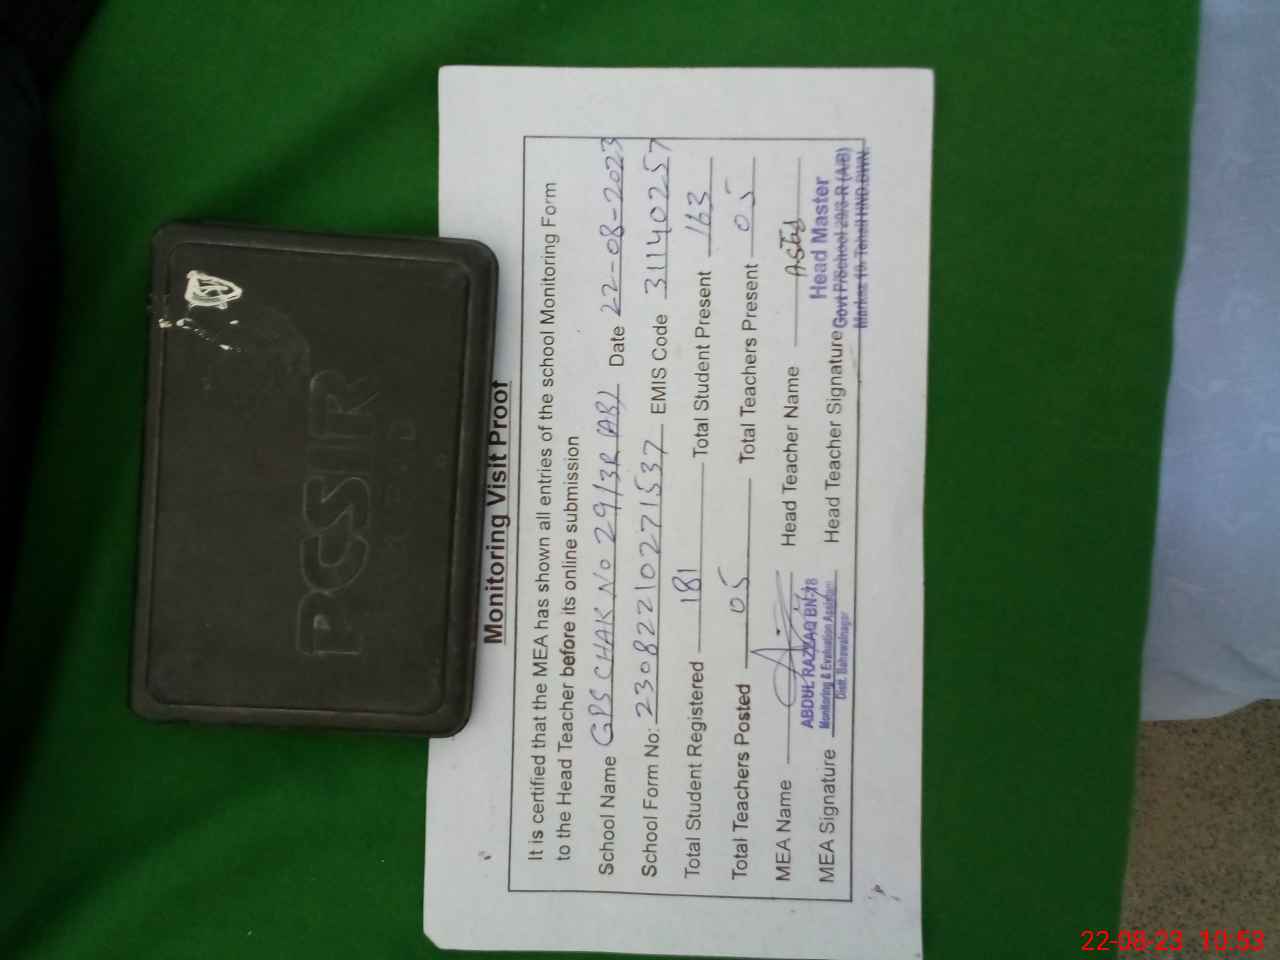 PCSIR
Monitoring Visit Proof
It is certified that the MEA has shown all entries of the school Monitoring Form
to the Head Teacher before its online submission
School Name GPS CHAK No 29/3R (AB) Date 22-08-2023
School Form No: 23082210271537 EMIS Code 31140257
Total Student Registered 181 Total Student Present 163
Total Teachers Posted 05 Total Teachers Present 05
MEA Name Head Teacher Name
ABDUL RAZZAQ BN-28
Monitoring & Evaluation Assistant
Distt. Bahawalnagar
MEA Signature Head Teacher Signature
Head Master
Govt P/School 29/3-R (A/B)
Markaz 10 Tehsil HND.BWN.
22-08-23 10:53